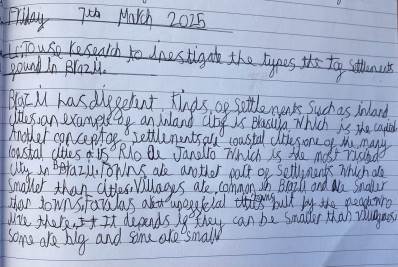 Friday 7th March 2025
L.I. To use research to investigate the types the settlements
found in Brazil.
Brazil has different kinds of settlements such as inland
cities an example of an inland city is Brasilia which is the capital
Another concept of settlements are coastal cities one of the many
coastal cities is Rio de Janeiro which is the most visited
city in Brazil. Towns are another part of settlments which are
smaller than cities. Villages are common in Brazil and are smaller
than towns. Favelas are but by the people who
live there. It depends if they can be smaller than villages
some are big and some are small